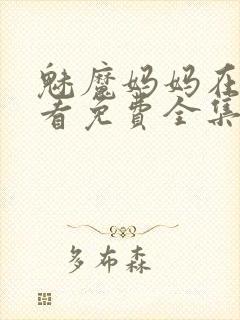 魅魔妈妈在
看免费全集
多布森